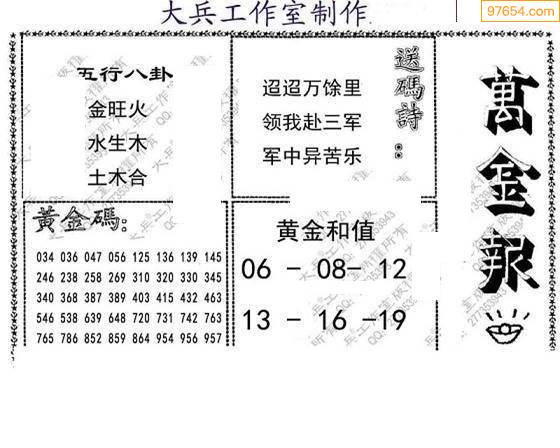 大兵工作室制作
97654.com
五行八卦
金旺火
水生木
土木合
送碼詩：
迢迢万馀里
领我赴三军
军中异苦乐
萬金报
黃金碼：
034 036 047 056 125 136 139 145
246 238 258 269 310 320 330 345
340 368 387 389 403 415 432 463
546 538 639 648 720 731 742 763
765 786 852 859 864 954 956 957
黄金和值
06 - 08- 12
13 - 16 -19